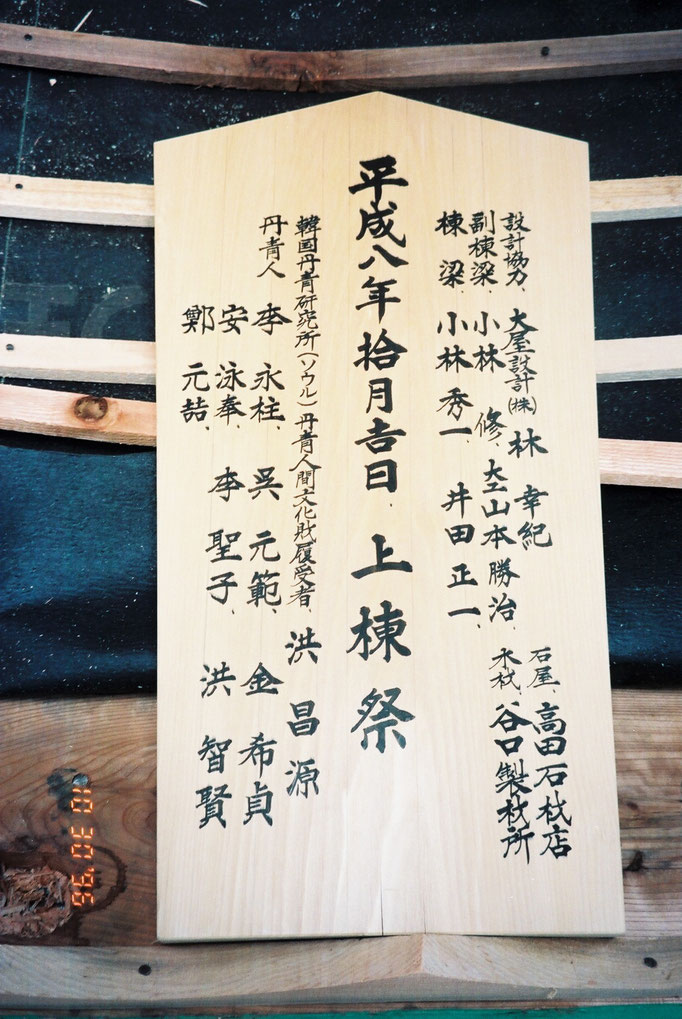 設計協力、大屋設計(株)林 幸紀 石屋、高田石材店
副棟梁、小林 修、大工山本勝治、木材、谷口製材所
棟梁、小林秀一、井田正一、
平成八年拾月吉日、上棟祭
韓国丹青研究所(ソウル)丹青人間文化財履受者、洪 昌源
丹青人 李 永柱、呉 元範、金 希貞
安 泳奉、李 聖子、洪 智賢
鄭 元喆、
10 30 '96